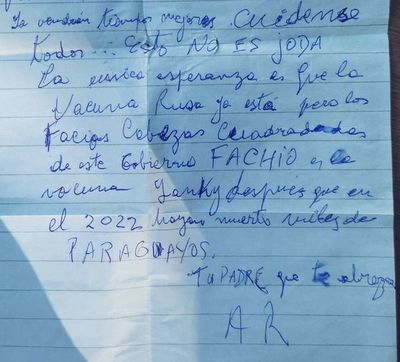 Ya vendrán tiempos mejores. Cuidense
todos... Esto NO ES JODA
La unica esperanza es que la
Vacuna Rusa ya esta pero los
Facios Cabezas Cuadradas
de este Gobierno FACHIO es la
vacuna Yanky después que en
el 2022 hayan muerto miles de
PARAGUAYOS.
Tu PADRE que te abraza
AR